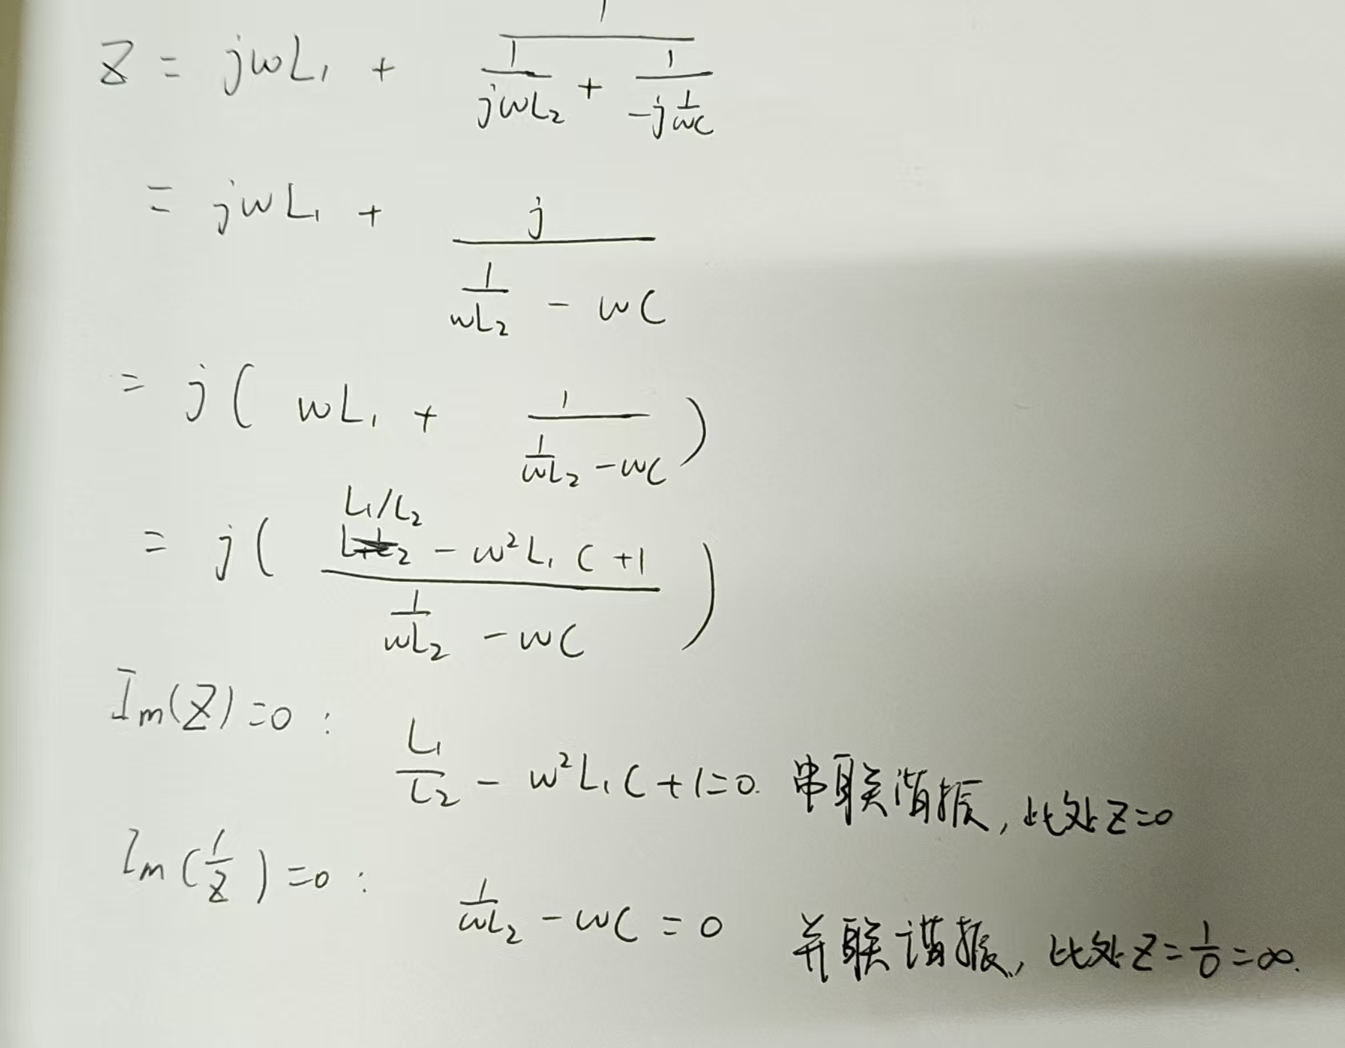 Z = jωL₁ + 1/(1/(jωL₂) + 1/(-j 1/(ωC)))
= jωL₁ + j/(1/(ωL₂) - ωC)
= j( ωL₁ + 1/(1/(ωL₂) - ωC) )
= j( (L₁/L₂ - ω²L₁C + 1)/(1/(ωL₂) - ωC) )
Im(Z)=0: L₁/L₂ - ω²L₁C + 1 = 0. 串联谐振, 此处Z=0
Im(1/Z)=0: 1/(ωL₂) - ωC = 0 并联谐振, 此处Z=1/0=∞.